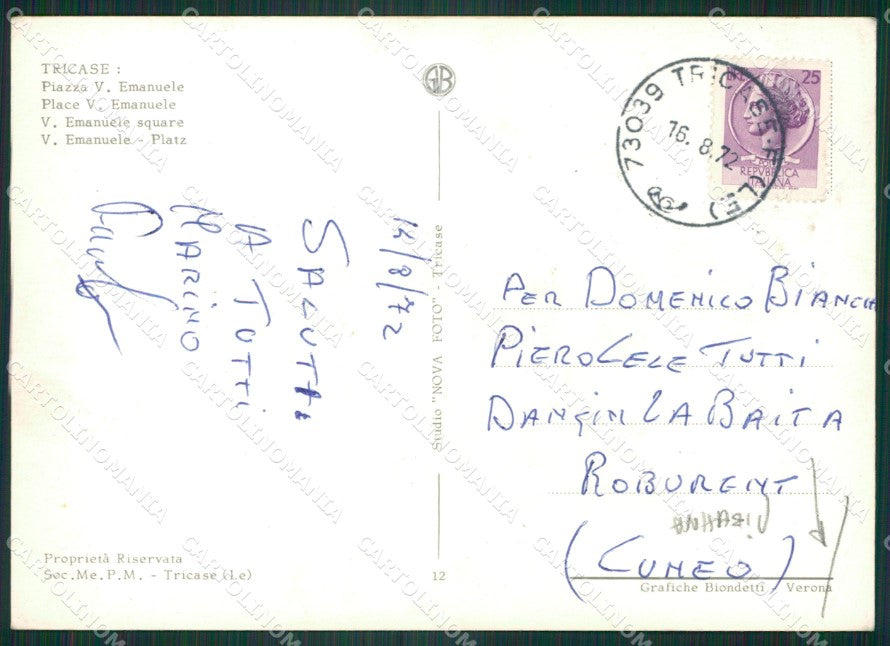 TRICASE :
Piazza V. Emanuele
Place V. Emanuele
V. Emanuele square
V. Emanuele - Platz
GB
73039 TRICASE (LE)
16.8.72
25
REPVBBLICA
ITALIANA
14/8/72
SALUTI
A TUTTI
MARINO
Studio "NOVA FOTO" - Tricase
PER DOMENICO BIANCHI
PIERO LELE TUTTI
DANCING LA BAITA
ROBURENT
(CUNEO)
Proprietà Riservata
Soc.Me.P.M. - Tricase (Le)
12
Grafiche Biondetti - Verona
CARTOLINOMANIA